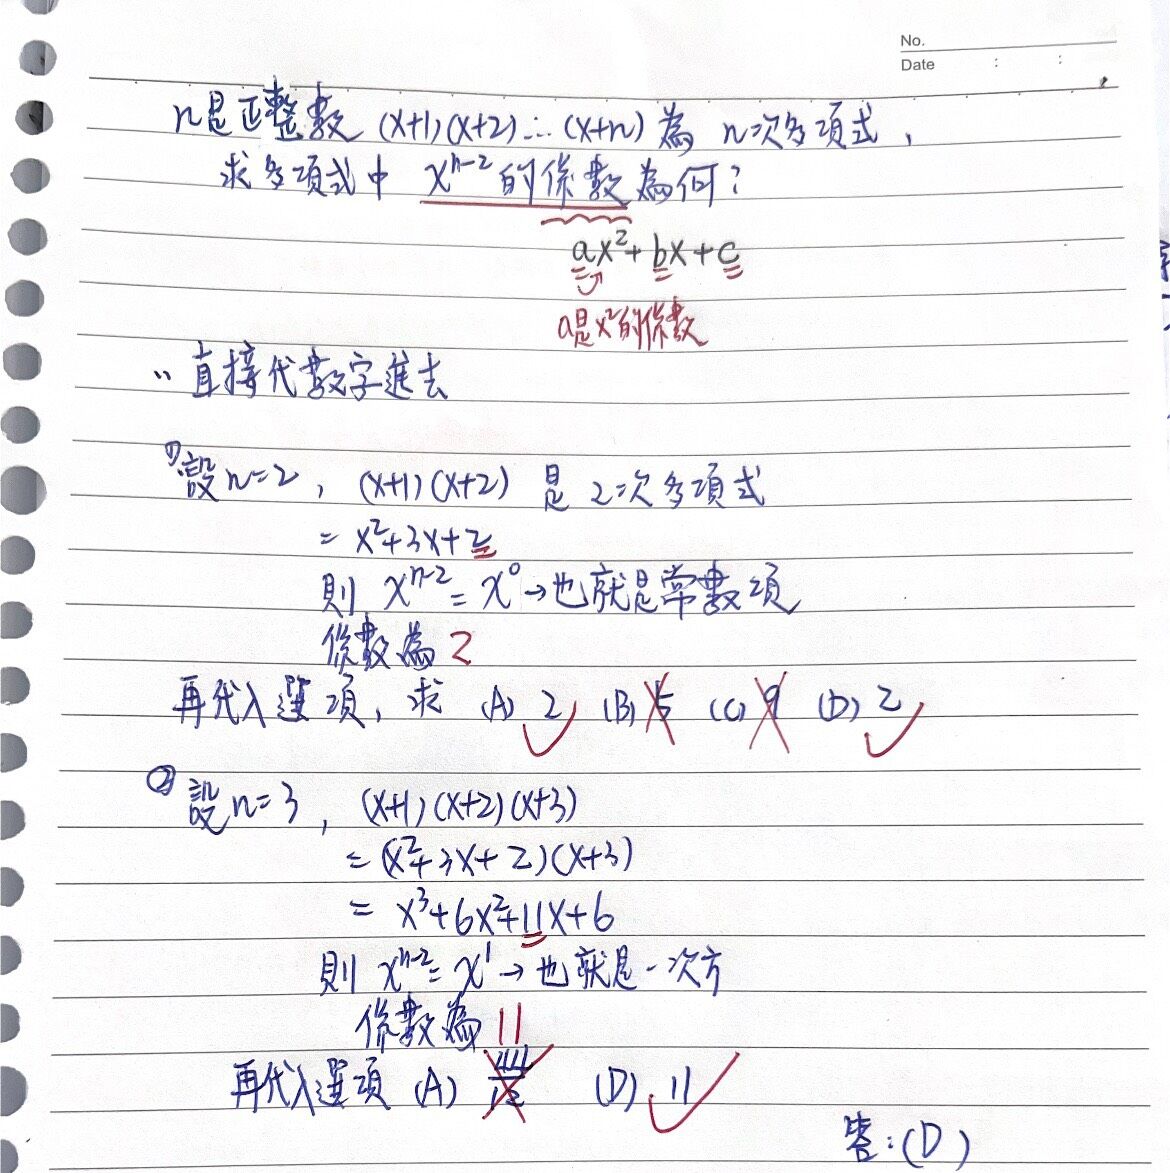 No.
Date : :
n是正整數 (x+1)(x+2)…(x+n)為 n次多項式,
求多項式中 xⁿ⁻²的係數為何?
ax²+bx+c
a是x²的係數
直接代數字進去
① 設n=2, (x+1)(x+2) 是 2次多項式
= x²+3x+2
則 xⁿ⁻² = x⁰→也就是常數項
係數為 2
再代入選項, 求 (A) 2 (B) 5 (C) 9 (D) 2
② 設n=3, (x+1)(x+2)(x+3)
= (x²+3x+2)(x+3)
= x³+6x²+11x+6
則 xⁿ⁻² = x¹→也就是一次方
係數為 11
再代入選項 (A) 44/12 (D) 11
答:(D)